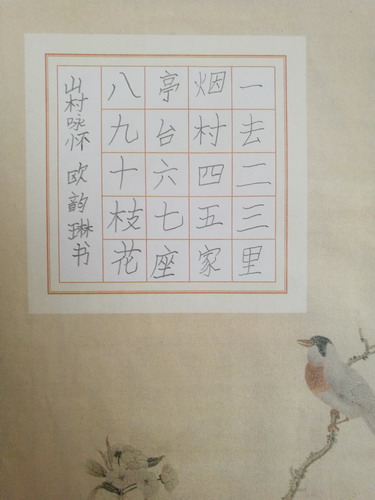 一去二三里
烟村四五家
亭台六七座
八九十枝花
山村咏怀 欧韵琳书